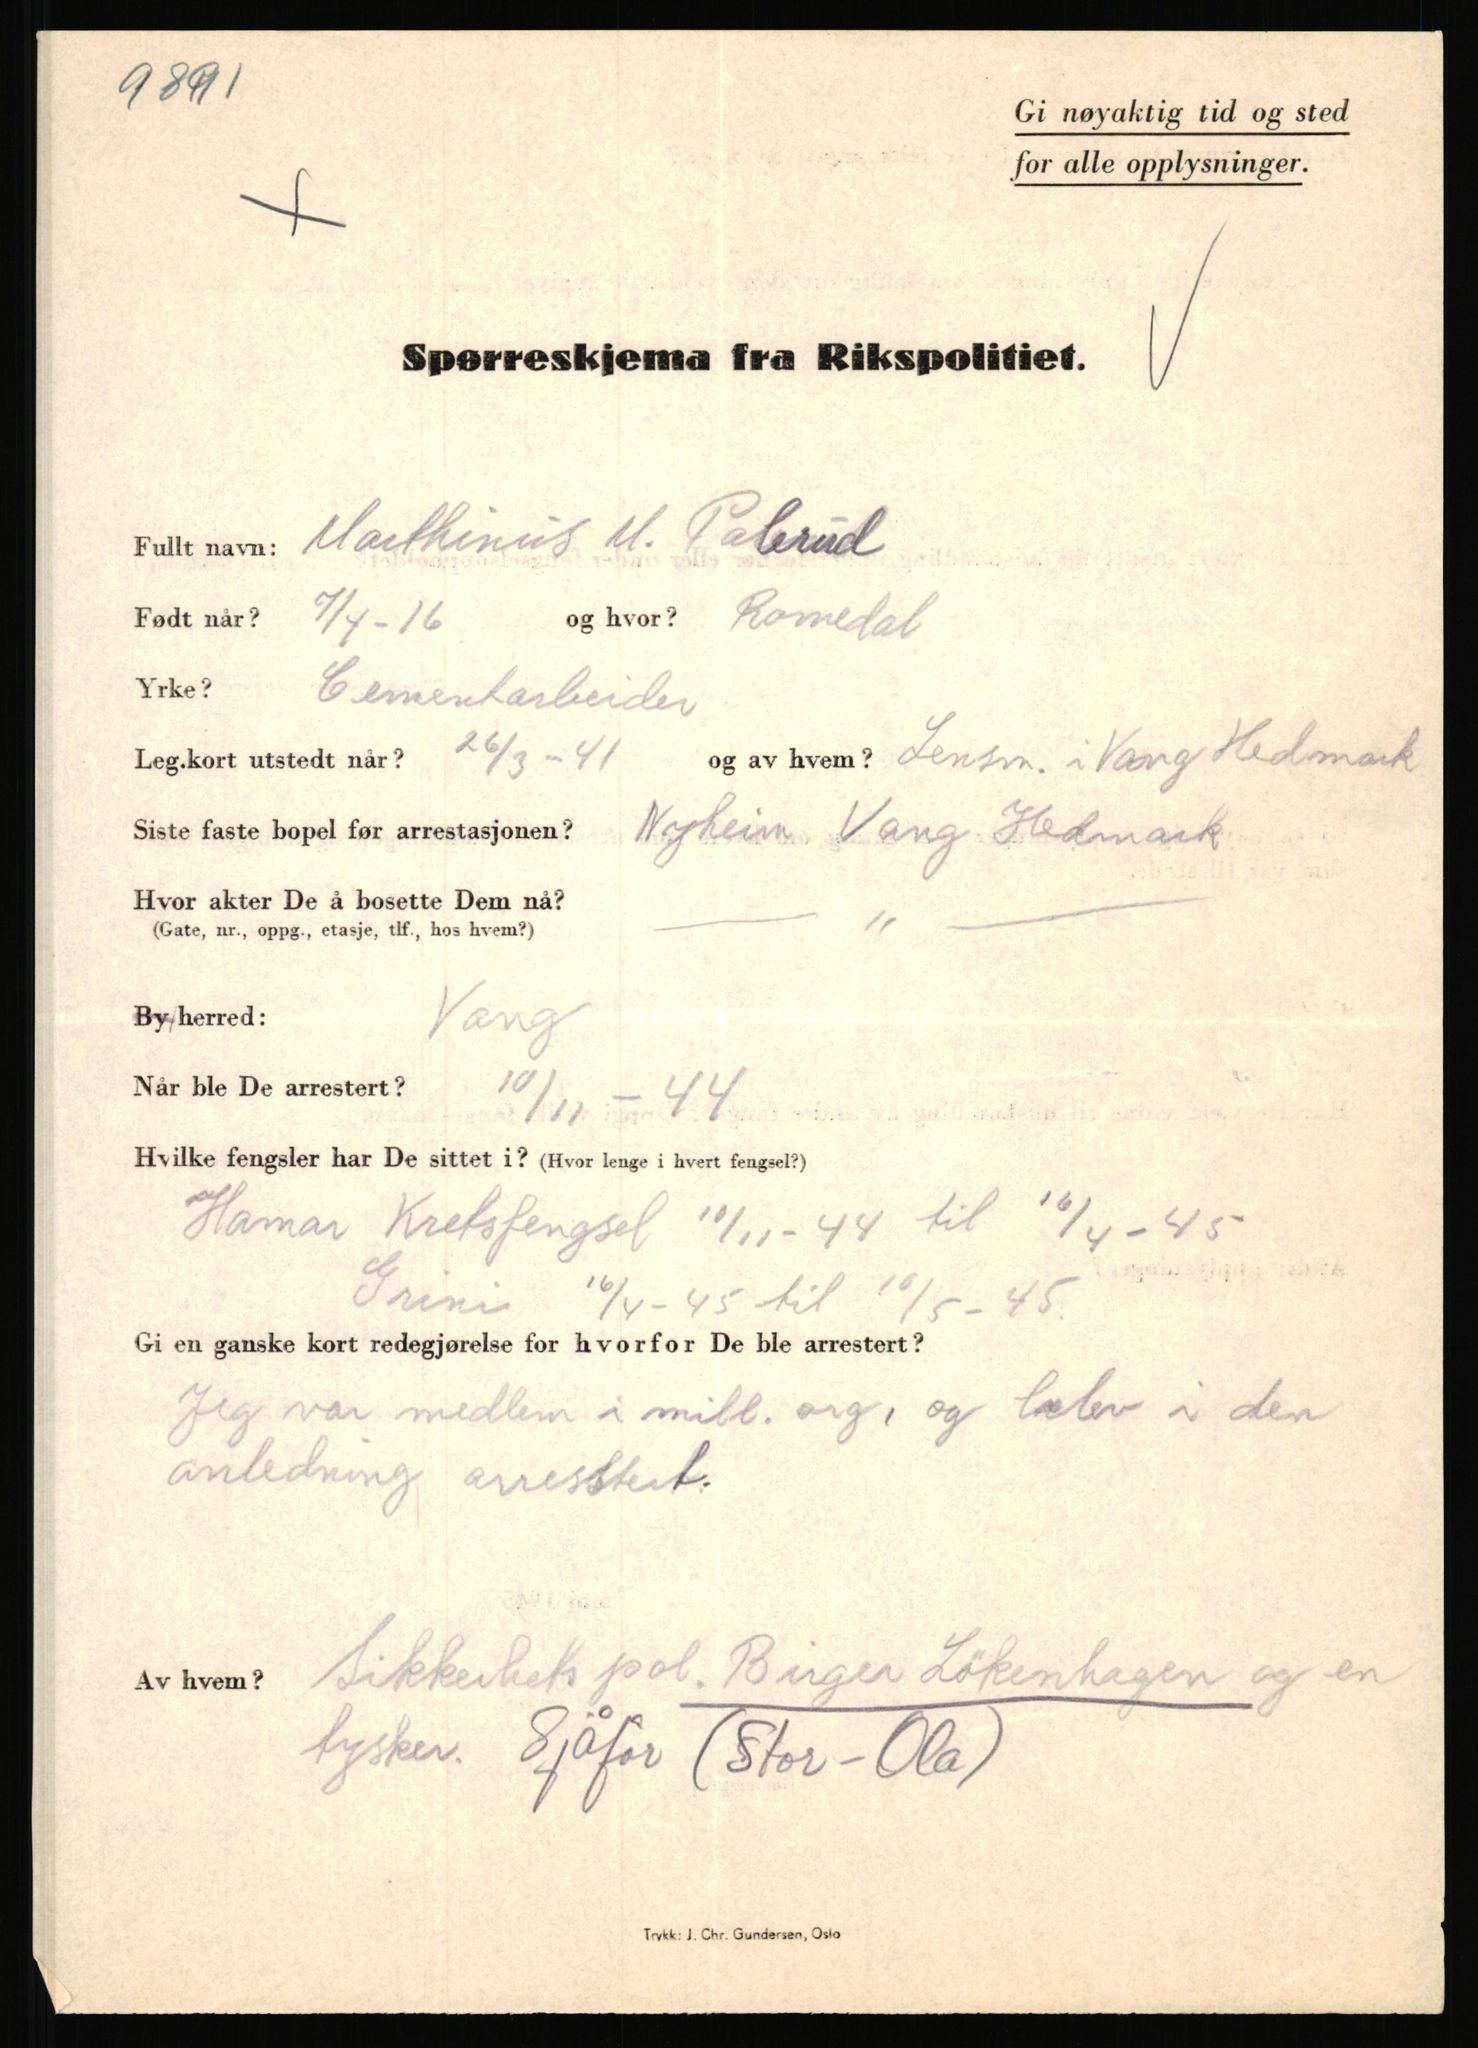 9891
Gi nøyaktig tid og sted
for alle opplysninger.
Spørreskjema fra Rikspolitiet.
Fullt navn: Marthinius M. Palerud
Født når? 7/4-16 og hvor? Romedal
Yrke? Cementarbeider
Leg.kort utstedt når? 26/3-41 og av hvem? Lensm. i Vang Hedmark
Siste faste bopel før arrestasjonen? Nyheim Vang Hedmark
Hvor akter De å bosette Dem nå? — " —
(Gate, nr., oppg., etasje, tlf., hos hvem?)
By/herred: Vang
Når ble De arrestert? 10/11-44
Hvilke fengsler har De sittet i? (Hvor lenge i hvert fengsel?)
Hamar Kretsfengsel 10/11-44 til 16/4-45
Grini 16/4-45 til /5-45.
Gi en ganske kort redegjørelse for hvorfor De ble arrestert?
Jeg var medlem i mill. org, og blev i den
anledning arresstert.
Av hvem? Sikkerhets pol. Birger Lökenhagen og en
tysker. Sjåfør (Stor-Ola)
Trykk: J. Chr. Gundersen, Oslo